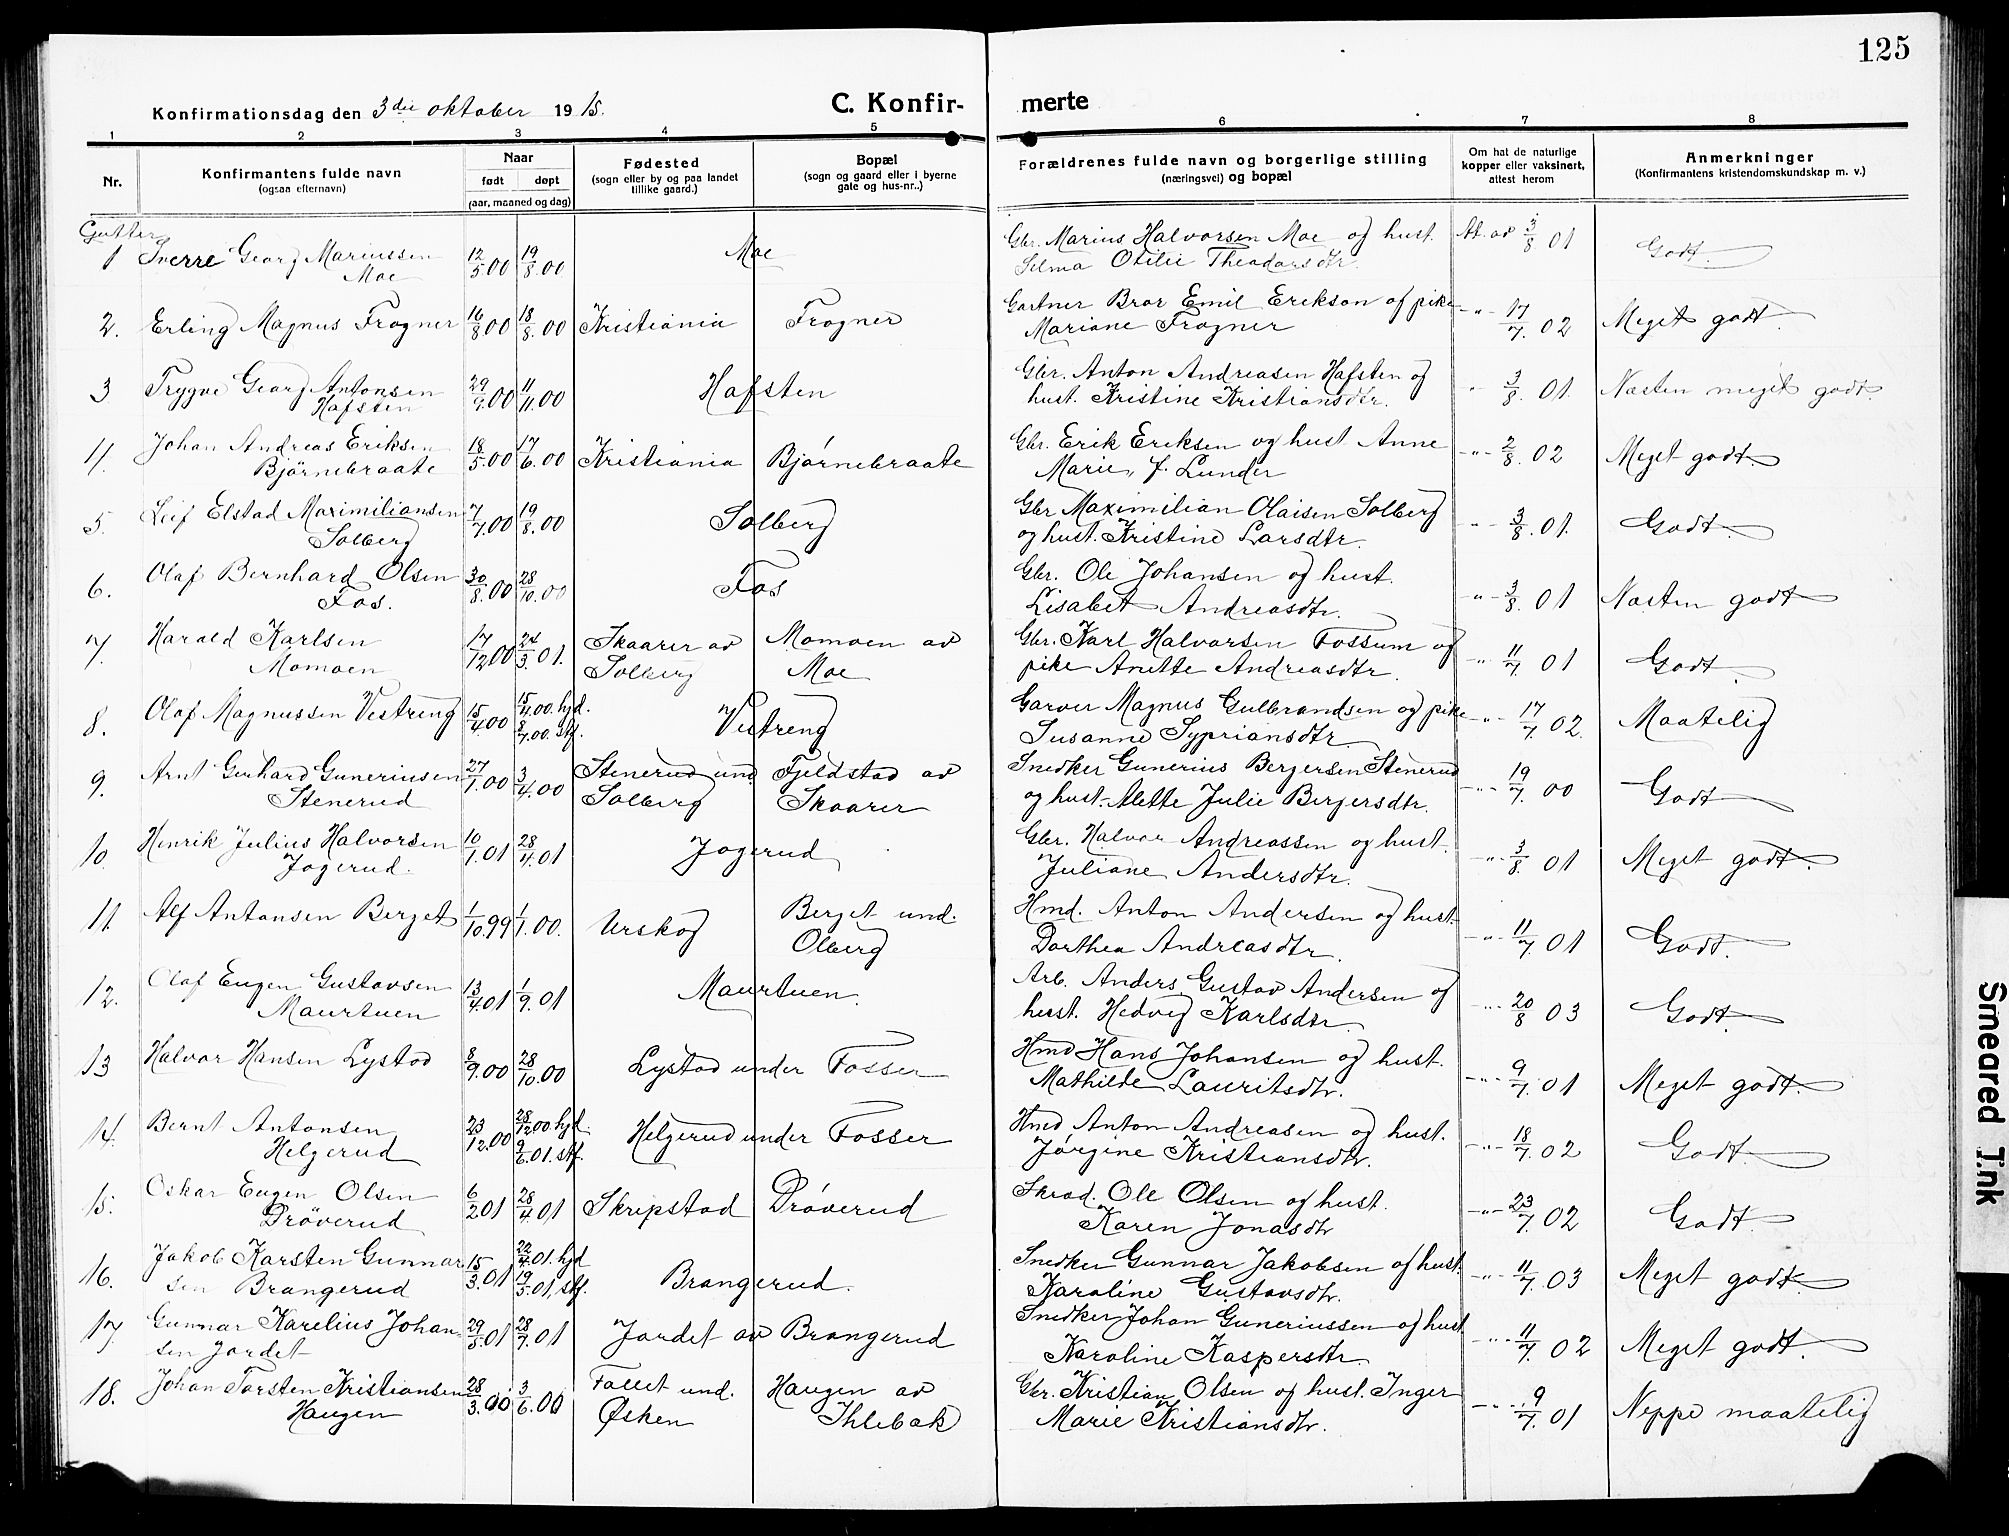 125
Konfirmationsdag den 3die oktober 1915.
C. Konfir- merte
1 2 3 4 5 6 7 8
Nr.
Konfirmantens fulde navn
(ogsaa efternavn)
Naar
født døpt
(aar, maaned og dag)
Fødested
(sogn eller by og paa landet
tillike gaard.)
Bopæl
(sogn og gaard eller i byerne
gate og hus-nr..)
Forældrenes fulde navn og borgerlige stilling
(næringsvei) og bopæl
Om hat de naturlige
kopper eller vaksinert,
attest herom
Anmerkninger
(Konfirmantens kristendomskundskap m. v.)
Gutter
1 Sverre Georg Mariussen 12/5.00 19/8.00 Moe Gbr. Marius Halvorsen Moe og hust. At. av 3/8 01 Godt.
Moe Selma Otilie Theodorsdtr.
2. Erling Magnus Frogner 16/8.00 18/8.00 Kristiania Frogner Gartner Bror Emil Erikson of pike -"- 17/7. 02 Meget godt.
Mariane Frogner
3 Trygve Georg Antonsen 29/9.00 11/11.00 Hafsten Gbr. Anton Andreasen Hafsten og " 3/8. 01. Næsten meget godt.
Hafsten hust. Kristine Kristiansdtr.
4. Johan Andreas Eriksen 18/5.00 17/6.00 Kristiania Bjørnebraate Gbr. Erik Eriksen og hust Anne -"- 2/8. 02 Meget godt.
Bjørnebraate Marie, f. Lunder
5. Leif Elstad Maximiliansen 7/7.00 19/8.00 Solberg Gbr Maximilian Olaisen Solberg -"- 3/8. 01. Godt.
Solberg og hust. Kristine Larsdtr.
6. Olaf Bernhard Olsen 30/8.00 28/10.00 Fos Gbr. Ole Johansen og hust. "- 3/8. 01 Næsten godt
Fos. Lisabet Andreasdtr.
7. Harald Karlsen 17/12.00 24/3.01. Skaarer av Momoen av Gbr. Karl Halvorsen Fossum og -"- 11/7 01 Godt.
Momoen Solberg Moe pike Anette Andreasdtr.
8. Olaf Magnussen Vestreng 15/4.00 15/4.00. hjd. Vestreng Garver Magnus Gulbrandsen og pike -"- 17/7. 02. Maatelig
8/7.00. stf. Susanne Sypriansdtr.
9. Arnt Gerhard Gunerinsen 27/1.00 3/4.00 Stenerud und Fjeldstad av Snedker Gunerius Bergersen Stenerud -"- 19/7. 00 Godt
Stenerud Solberg Skaarer og hust. Alette Julie Bergersdtr.
10. Henrik Julius Halvorsen 10/1.01 28/4.01 Jogerud Gbr. Halvor Andreassen og hust. -"- 3/8. 01 Meget godt.
Jogerud. Juliane Andersdtr.
11. Alf Antonsen Berget 1/10.99 1/1.00. Urskog Berget und. Hmd. Anton Andersen og hust. -"- 11/7. 01 Godt.
Olberg Dorthea Andreasdtr.
12. Olaf Eugen Gustavsen 13/4.01 1/9.01 Maurtuen. Arb. Anders Gustav Andersen og -"- 20/8 03 Godt.
Maurtuen hust. Hedvig Karlsdtr.
13 Halvor Hansen Lystad 8/9.00 28/10.00 Lystad under Fosser Hmd Hans Johansen og hust. -"- 9/7. 01 Meget godt.
Mathilde Lauritsdtr.
14. Bernt Antonsen 23/12.00 28/12.00 hjd. Helgerud under Fosser Hmd Anton Andreasen og hust. -"- 18/7. 02 Godt.
Helgerud 9/6.01. stf. Jørgine Kristiansdtr.
15. Oskar Eugen Olsen 6/2.01 28/4.01 Skripstad Drøverud Skrad. Ole Olsen og hust. -"- 23/7. 02 Godt.
Drøverud Karen Jonasdtr
16. Jakob Karsten Gunnar 15/3.01 22/4.01. hjd Brangerud. Snedker Gunnar Jakobsen of hust. -"- 11/7. 03 Meget godt.
sen Brangerud 19/5.01. stf. Karoline Gustavsdtr.
17. Gunnar Karelius Johan- 29/5.01 28/7.01 Jordet av Brangerud Snedker Johan Guneriussen of hust -"- 11/7. 02 Meget godt.
sen Jordet Karoline Kaspersdtr
18. Johan Torsten Kristiansen 28/3.00 3/6.00 Fallet und. Haugen av Gbr. Kristian Olsen of hust. Inger -"- 9/7. 01 Neppe maatelig
Haugen Øsken Ihlebæk Marie Kristiansdtr.
Smeared Ink